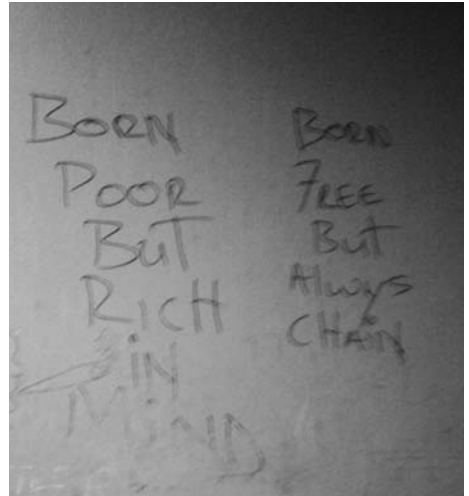 BORN
POOR
BUT
RICH
iN
MiND
BORN
FREE
BuT
Always
CHAiN